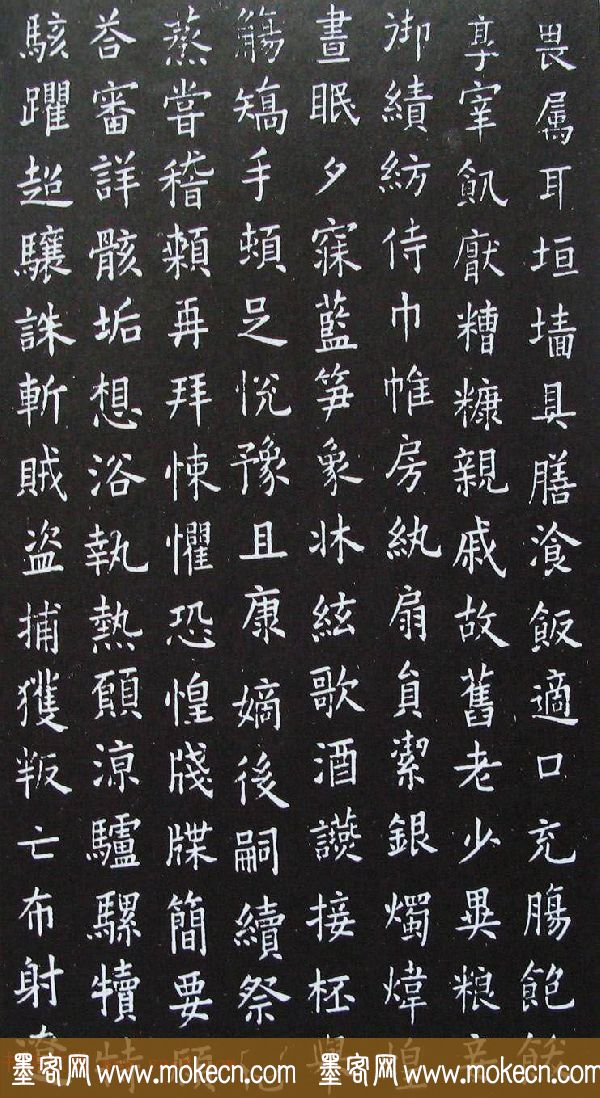 畏属耳垣墻具膳湌飯適口充腸飽飫
享宰飢厭糟糠親戚故舊老少異粮
御績紡侍巾帷房紈扇員潔銀燭煒煌
晝眠夕寐藍笋象牀絃歌酒讌接杯舉
觴矯手頓足悅豫且康嫡後嗣續祭祀
蒸嘗稽顙再拜悚懼恐惶牋牒簡要顧
荅審詳骸垢想浴執熱願涼驢騾犢特
駭躍超驤誅斬賊盗捕獲叛亡布射
墨客网 www.mokecn.com 墨客网 www.mokecn.com